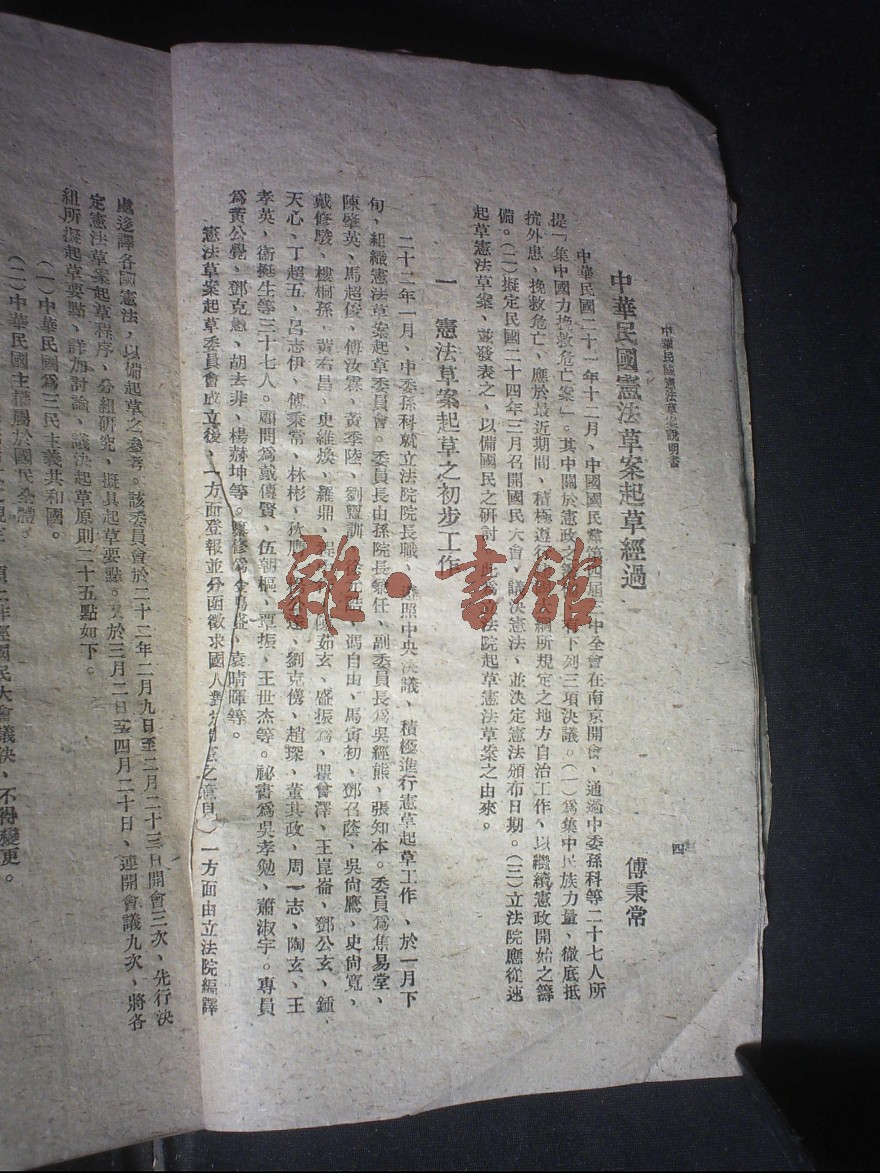 中華民國憲法草案說明書
四
中華民國憲法草案起草經過
傅秉常
中華民國二十一年十二月、中國國民黨第四屆三中全會在南京開會、通過中委孫科等二十七人所
提「集中國力挽救危亡案」。其中關於憲政之 下列三項決議。(一)爲集中民族力量、徹底抵
抗外患、挽救危亡、應於最近期間、積極遵行 所規定之地方自治工作、以繼續憲政開始之籌
備。(二)擬定民國二十四年三月召開國民大會、議決憲法、並決定憲法頒布日期。(三)立法院應從速
起草憲法草案、並發表之、以備國民之研討 立法院起草憲法草案之由來。
一 憲法草案起草之初步工作
二十二年一月、中委孫科就立法院院長職、遵照中央決議、積極進行憲草起草工作、於一月下
旬、組織憲法草案起草委員會。委員長由孫院長兼任、副委員長爲吳經熊、張知本。委員爲焦易堂、
陳肇英、馬超俊、傅汝霖、黃季陸、劉盥訓、 馮自由、馬寅初、鄧召蔭、吳尚鷹、史尚寬、
戴修駿、樓桐孫、黃右昌、史維煥、羅鼎、 茹玄、盛振爲、瞿曾澤、王崑崙、鄧公玄、鍾
天心、丁超五、呂志伊、傅秉常、林彬、 劉克儁、趙琛、董其政、周一志、陶玄、王
孝英、衞挺生等三十七人。顧問爲戴傳賢、伍朝樞、覃振、王世杰等。祕書爲吳孝勉、蕭淑宇。專員
爲黃公覺、鄧克愚、胡去非、楊赫坤等。 袁晴暉等。
憲法草案起草委員會成立後、一方面登報並分函徵求國人對於 憲之意見、一方面由立法院編譯
處迻譯各國憲法、以備起草之參考。該委員會於二十二年二月九日至二月二十三日開會三次、先行決
定憲法草案起草程序、分組研究、擬具起草要點。又於三月二日至四月二十日、連開會議九次、將各
組所擬起草要點、詳加討論、議決起草原則二十五點如下。
(一)中華民國爲三民主義共和國。
(二)中華民國主權屬於國民全體。
非經國民大會議決、不得變更。
雜·書館